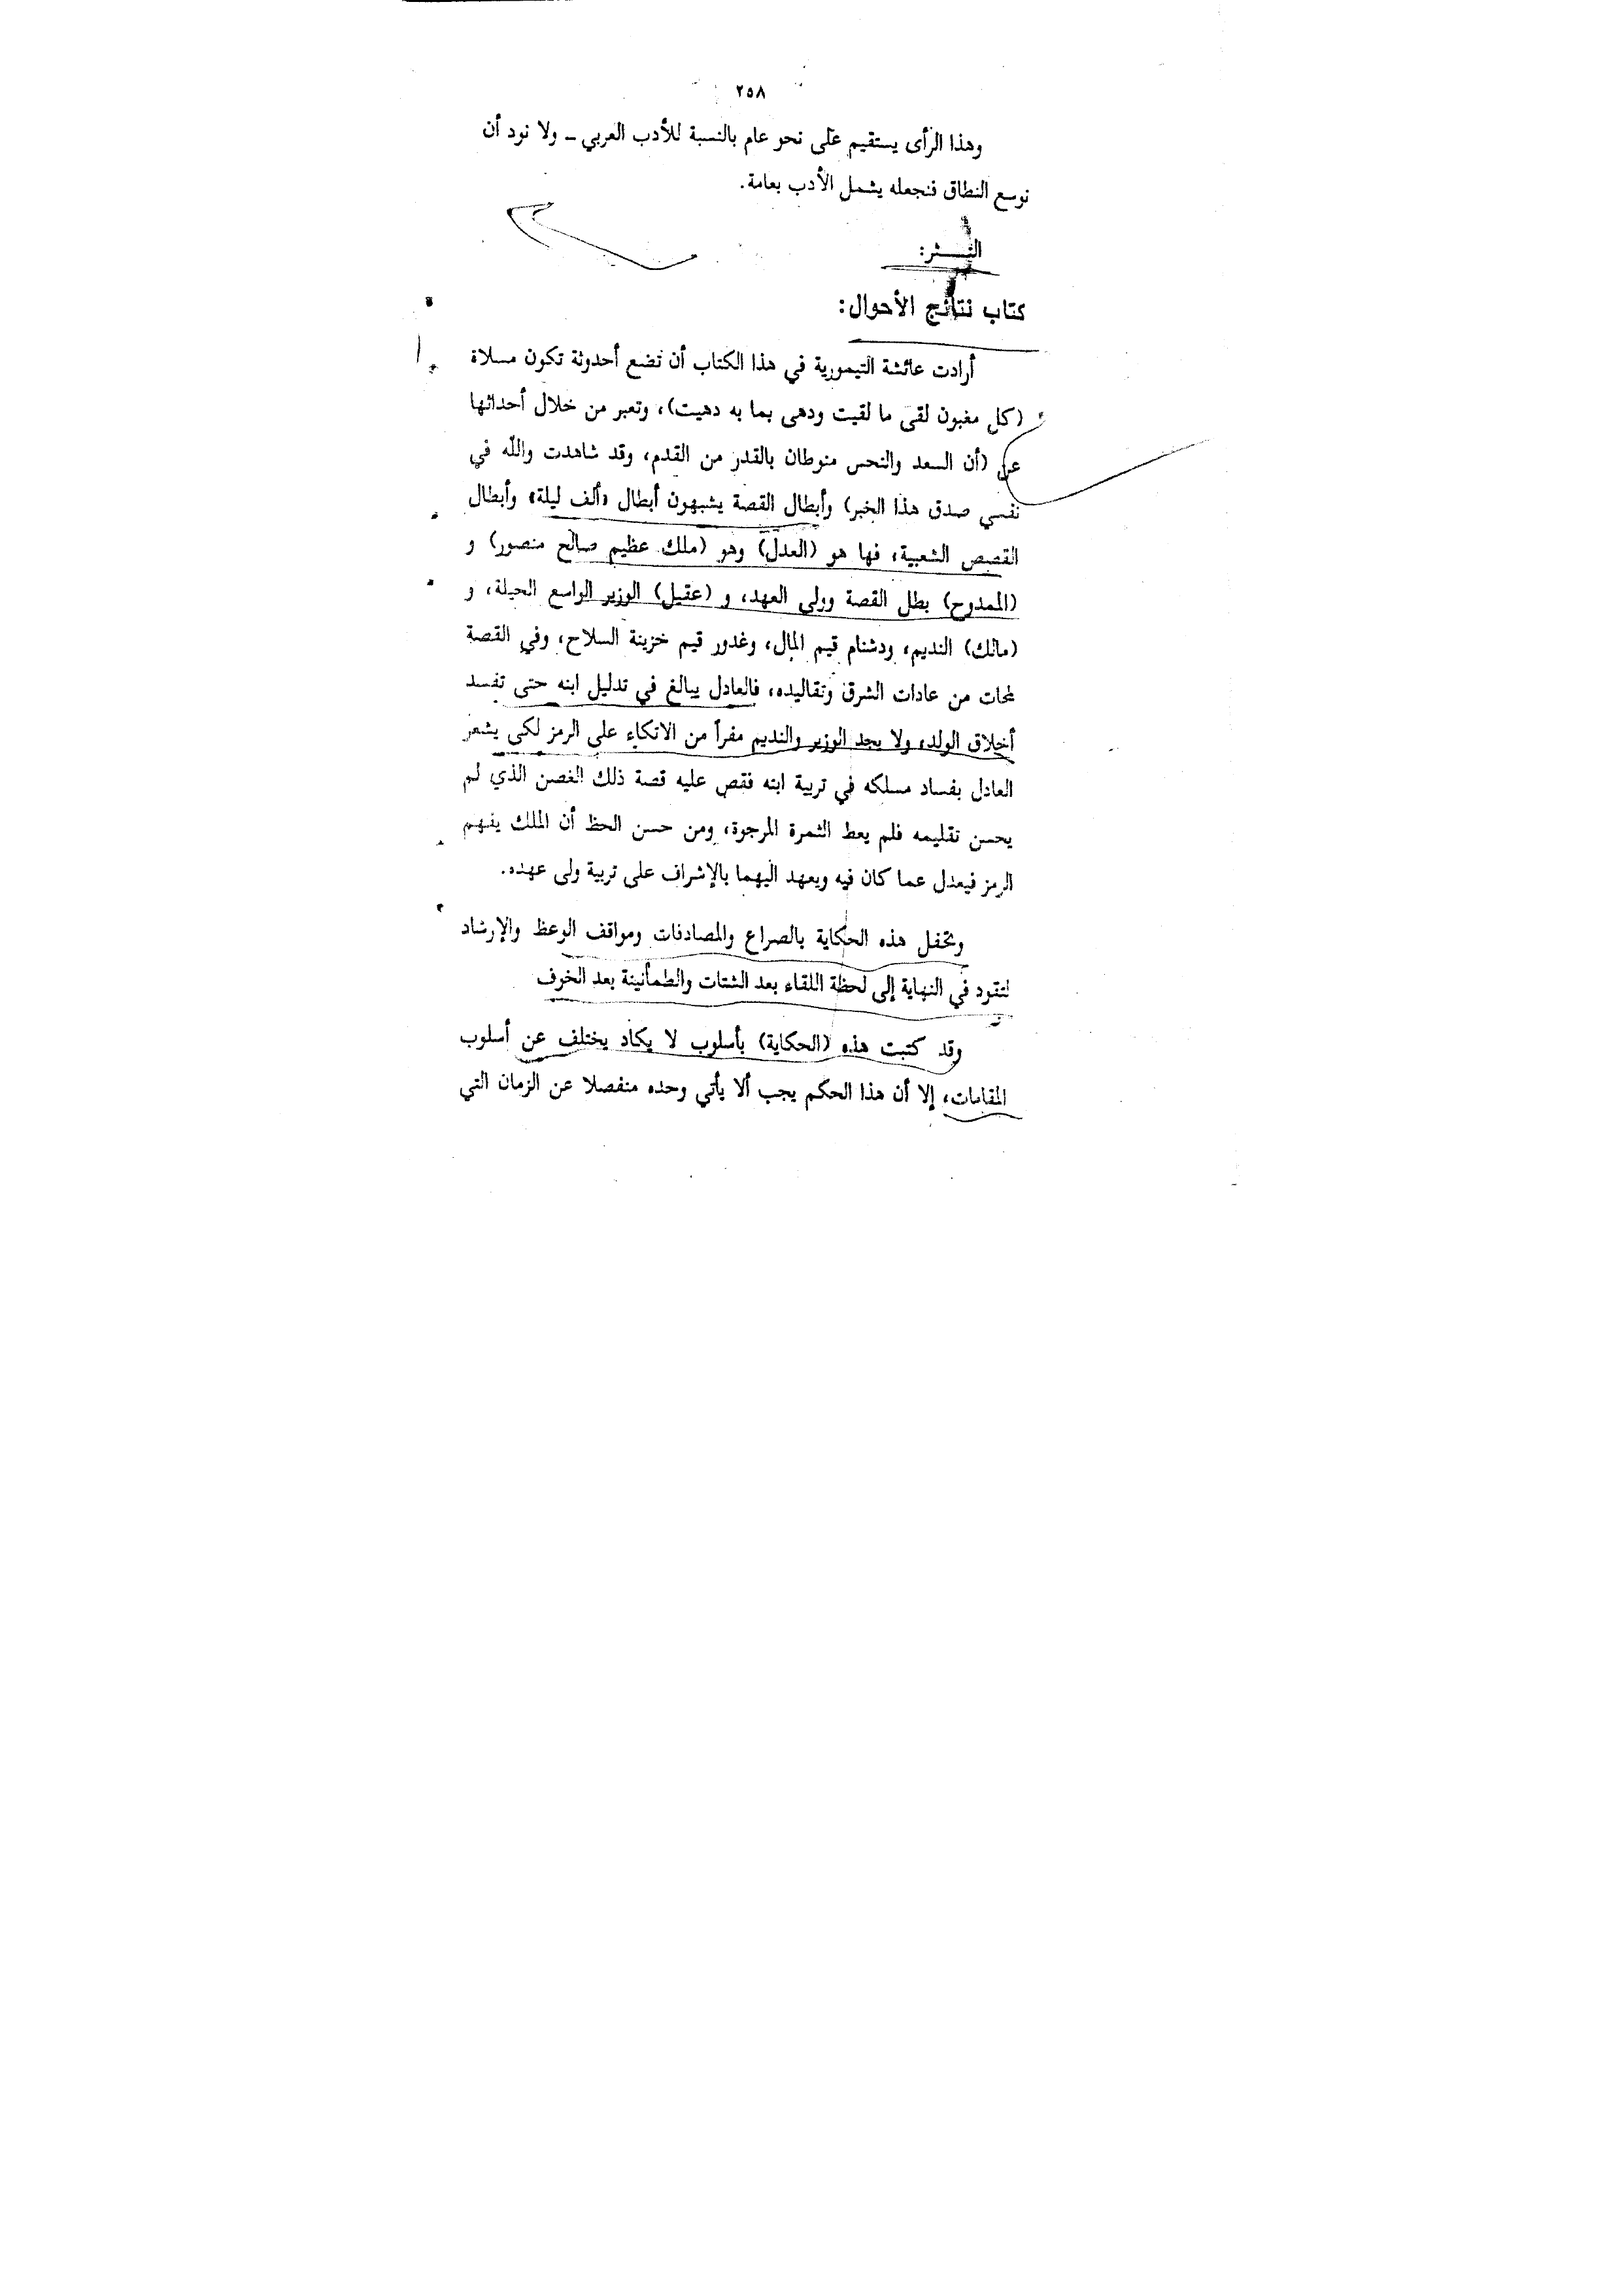 ٢٥٨
وهذا الرأى يستقيم على نحو عام بالنسبة للأدب العربي ــ ولا نود أن
نوسع النطاق فنجعله يشمل الأدب بعامة.
النـــثر:
كتاب نتائج الأحوال:
أرادت عائشة التيمورية في هذا الكتاب أن تضع أحدوثة تكون مسلاة
(كل مغبون لقى ما لقيت ودهى بما به دهيت)، وتعبر من خلال أحداثها
عن (أن السعد والنحس منوطان بالقدر من القدم، وقد شاهدت والله في
نفسي صدق هذا الخبر) وأبطال القصة يشبهون أبطال «ألف ليلة» وأبطال
القصص الشعبية، فها هو (العدل) وهو (ملك عظيم صالح منصور) و
(الممدوح) بطل القصة وولى العهد، و (عقيل) الوزير الواسع الحيلة، و
(مالك) النديم، ودشنام قيم المال، وغدور قيم خزينة السلاح، وفي القصة
لمحات من عادات الشرق وتقاليده، فالعادل يبالغ في تدليل ابنه حتى تفسد
أخلاق الولد، ولا يجد الوزير والنديم مفراً من الاتكاء على الرمز لكى يشعر
العادل بفساد مسلكه في تربية ابنه فقص عليه قصة ذلك الغصن الذي لم
يحسن تقليمه فلم يعط الثمرة المرجوة، ومن حسن الحظ أن الملك يفهم
الرمز فيعدل عما كان فيه ويعهد اليهما بالإشراف على تربية ولى عهده.
وتحفل هذه الحكاية بالصراع والمصادفات ومواقف الوعظ والإرشاد
لتقود في النهاية إلى لحظة اللقاء بعد الشتات والطمأنينة بعد الخوف
وقد كتبت هذه (الحكاية) بأسلوب لا يكاد يختلف عن أسلوب
المقامات، إلا أن هذا الحكم يجب ألا يأتي وحده منفصلا عن الزمان التي